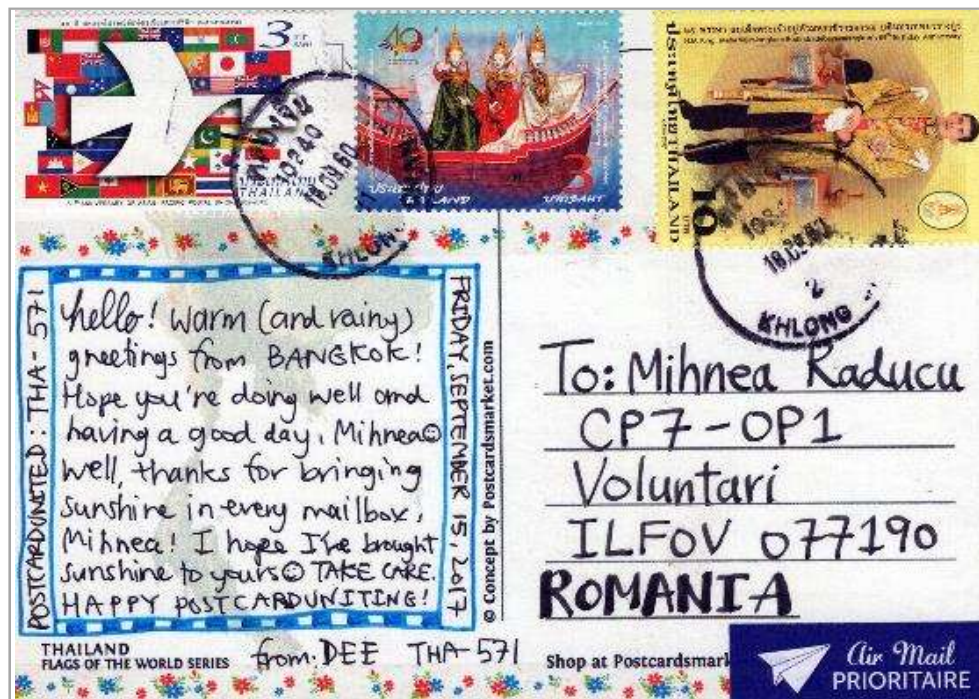 3
BAHT
THAILAND
40
ประเทศไทย
THAILAND
ประเทศไทย THAILAND
10
10240
18.09.60
KHLONG
2
KHLONG
POSTCARDUNITED: THA-571
hello! warm (and rainy)
greetings from BANGKOK!
Hope you're doing well and
having a good day, Mihnea☺
well, thanks for bringing
sunshine in every mailbox,
Mihnea! I hope I've brought
sunshine to yours☺ TAKE CARE.
HAPPY POSTCARDUNITING!
FRIDAY, SEPTEMBER 15, 2017
© Concept by Postcardsmarket.com
To: Mihnea Raducu
CP7-OP1
Voluntari
ILFOV 077190
ROMANIA
THAILAND
FLAGS OF THE WORLD SERIES
from: DEE THA-571
Shop at Postcardsmark
Air Mail
PRIORITAIRE